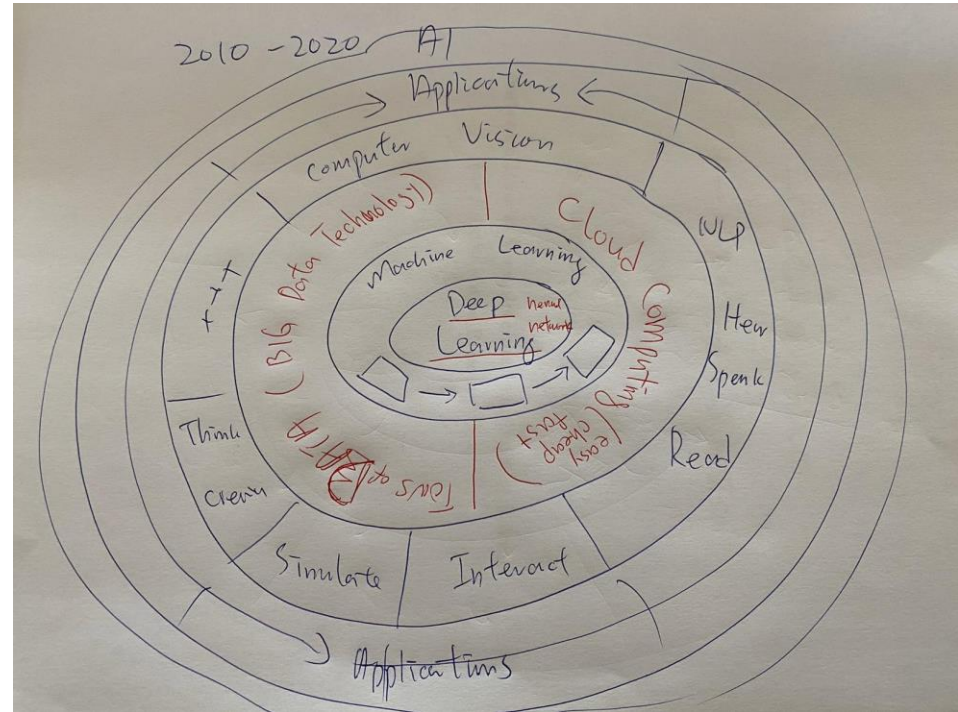 2010 - 2020 AI
Applications
Computer Vision
NLP
Hear
Speak
Read
Interact
Simulate
Think
+++
(BIG Data Technology)
Tons of DATA
Cloud Computing (easy
cheap
fast)
Machine Learning
Deep
Learning
neural
network
Applications